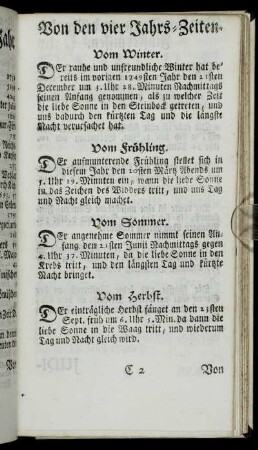 Von den vier Jahrs-Zeiten.
Vom Winter.
DEr rauhe und unfreundliche Winter hat be-
reits im vorigen 1749sten Jahr den 21sten
December um 5. Uhr 28. Minuten Nachmittags
seinen Anfang genommen, als zu welcher Zeit
die liebe Sonne in den Steinbock getretten, und
uns dadurch den kürtzten Tag und die längste
Nacht verursachet hat.
Vom Frühling.
DEr aufmunterende Frühling stellet sich in
diesem Jahr den 20sten Märtz Abends um
5. Uhr 19. Minuten ein, wann die liebe Sonne
in das Zeichen des Widders tritt, und uns Tag
und Nacht gleich machet.
Vom Sommer.
DEr angenehme Sommer nimmt seinen An-
fang den 21sten Junii Nachmittags gegen
4. Uhr 37. Minuten, da die liebe Sonne in den
Krebs tritt, und den längsten Tag und kürtzte
Nacht bringet.
Vom Herbst.
DEr einträgliche Herbst fänget an den 23sten
Sept. früh um 6. Uhr 5. Min. da dann die
liebe Sonne in die Waag tritt, und wiederum
Tag und Nacht gleich wird.
C 2 Von